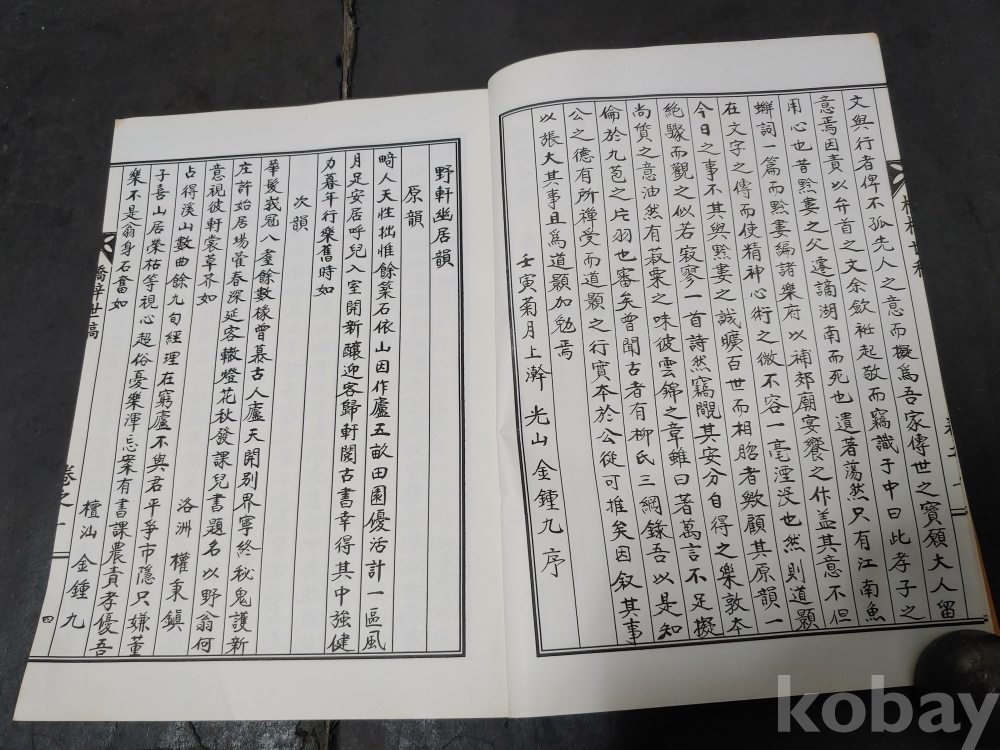 文與行者俾不孤先人之意而擬爲吾家傳世之寶願大人留
意焉因責以弁首之文余斂袵起敬而竊識于中曰此孝子之
用心也昔黔婁之父遷謫湖南而死也遺著蕩然只有江南魚
蟹詞一篇而黔婁編諸樂府以補郊廟宴饗之作盖其意不但
在文字之傳而使精神心術之微不容一毫湮没也然則道顯
今日之事不其與黔婁之誠曠百世而相照者歟顧其原韻一
絶驟而觀之似若寂寥一首詩然竊覸其安分自得之樂敦本
尚質之意油然有菽粟之味彼雲錦之章雖曰著萬言不足擬
倫於九苞之片羽也審矣曾聞古者有柳氏三綱錄吾以是知
公之德有所禪受而道顯之行實本於公從可推矣因叙其事
以張大其事且爲道顯加勉焉
壬寅菊月上澣 光山 金鍾九 序
野軒幽居韻
原韻
畸人天性拙惟餘築石依山因作廬五畝田園優活計一區風
月足安居呼兒入室開新釀迎客歸軒閱古書幸得其中強健
力暮年行樂舊時如
次韻
華髮峩冠八耋餘數椽曾慕古人廬天開別界寧終秘鬼護新
庄許始居場藿春深延客轍燈花秋發課兒書題名以野翁何
意視彼軒裳草芥如
洛洲 權秉鎭
占得溪山數曲餘九旬經理在窮廬不與君平爭市隱只嫌董
子喜山居榮枯等視心超俗憂樂渾忘案有書課農責孝優吾
樂不是翁身石奮如
檀汕 金鍾九
橋梓世稿
卷之一
四